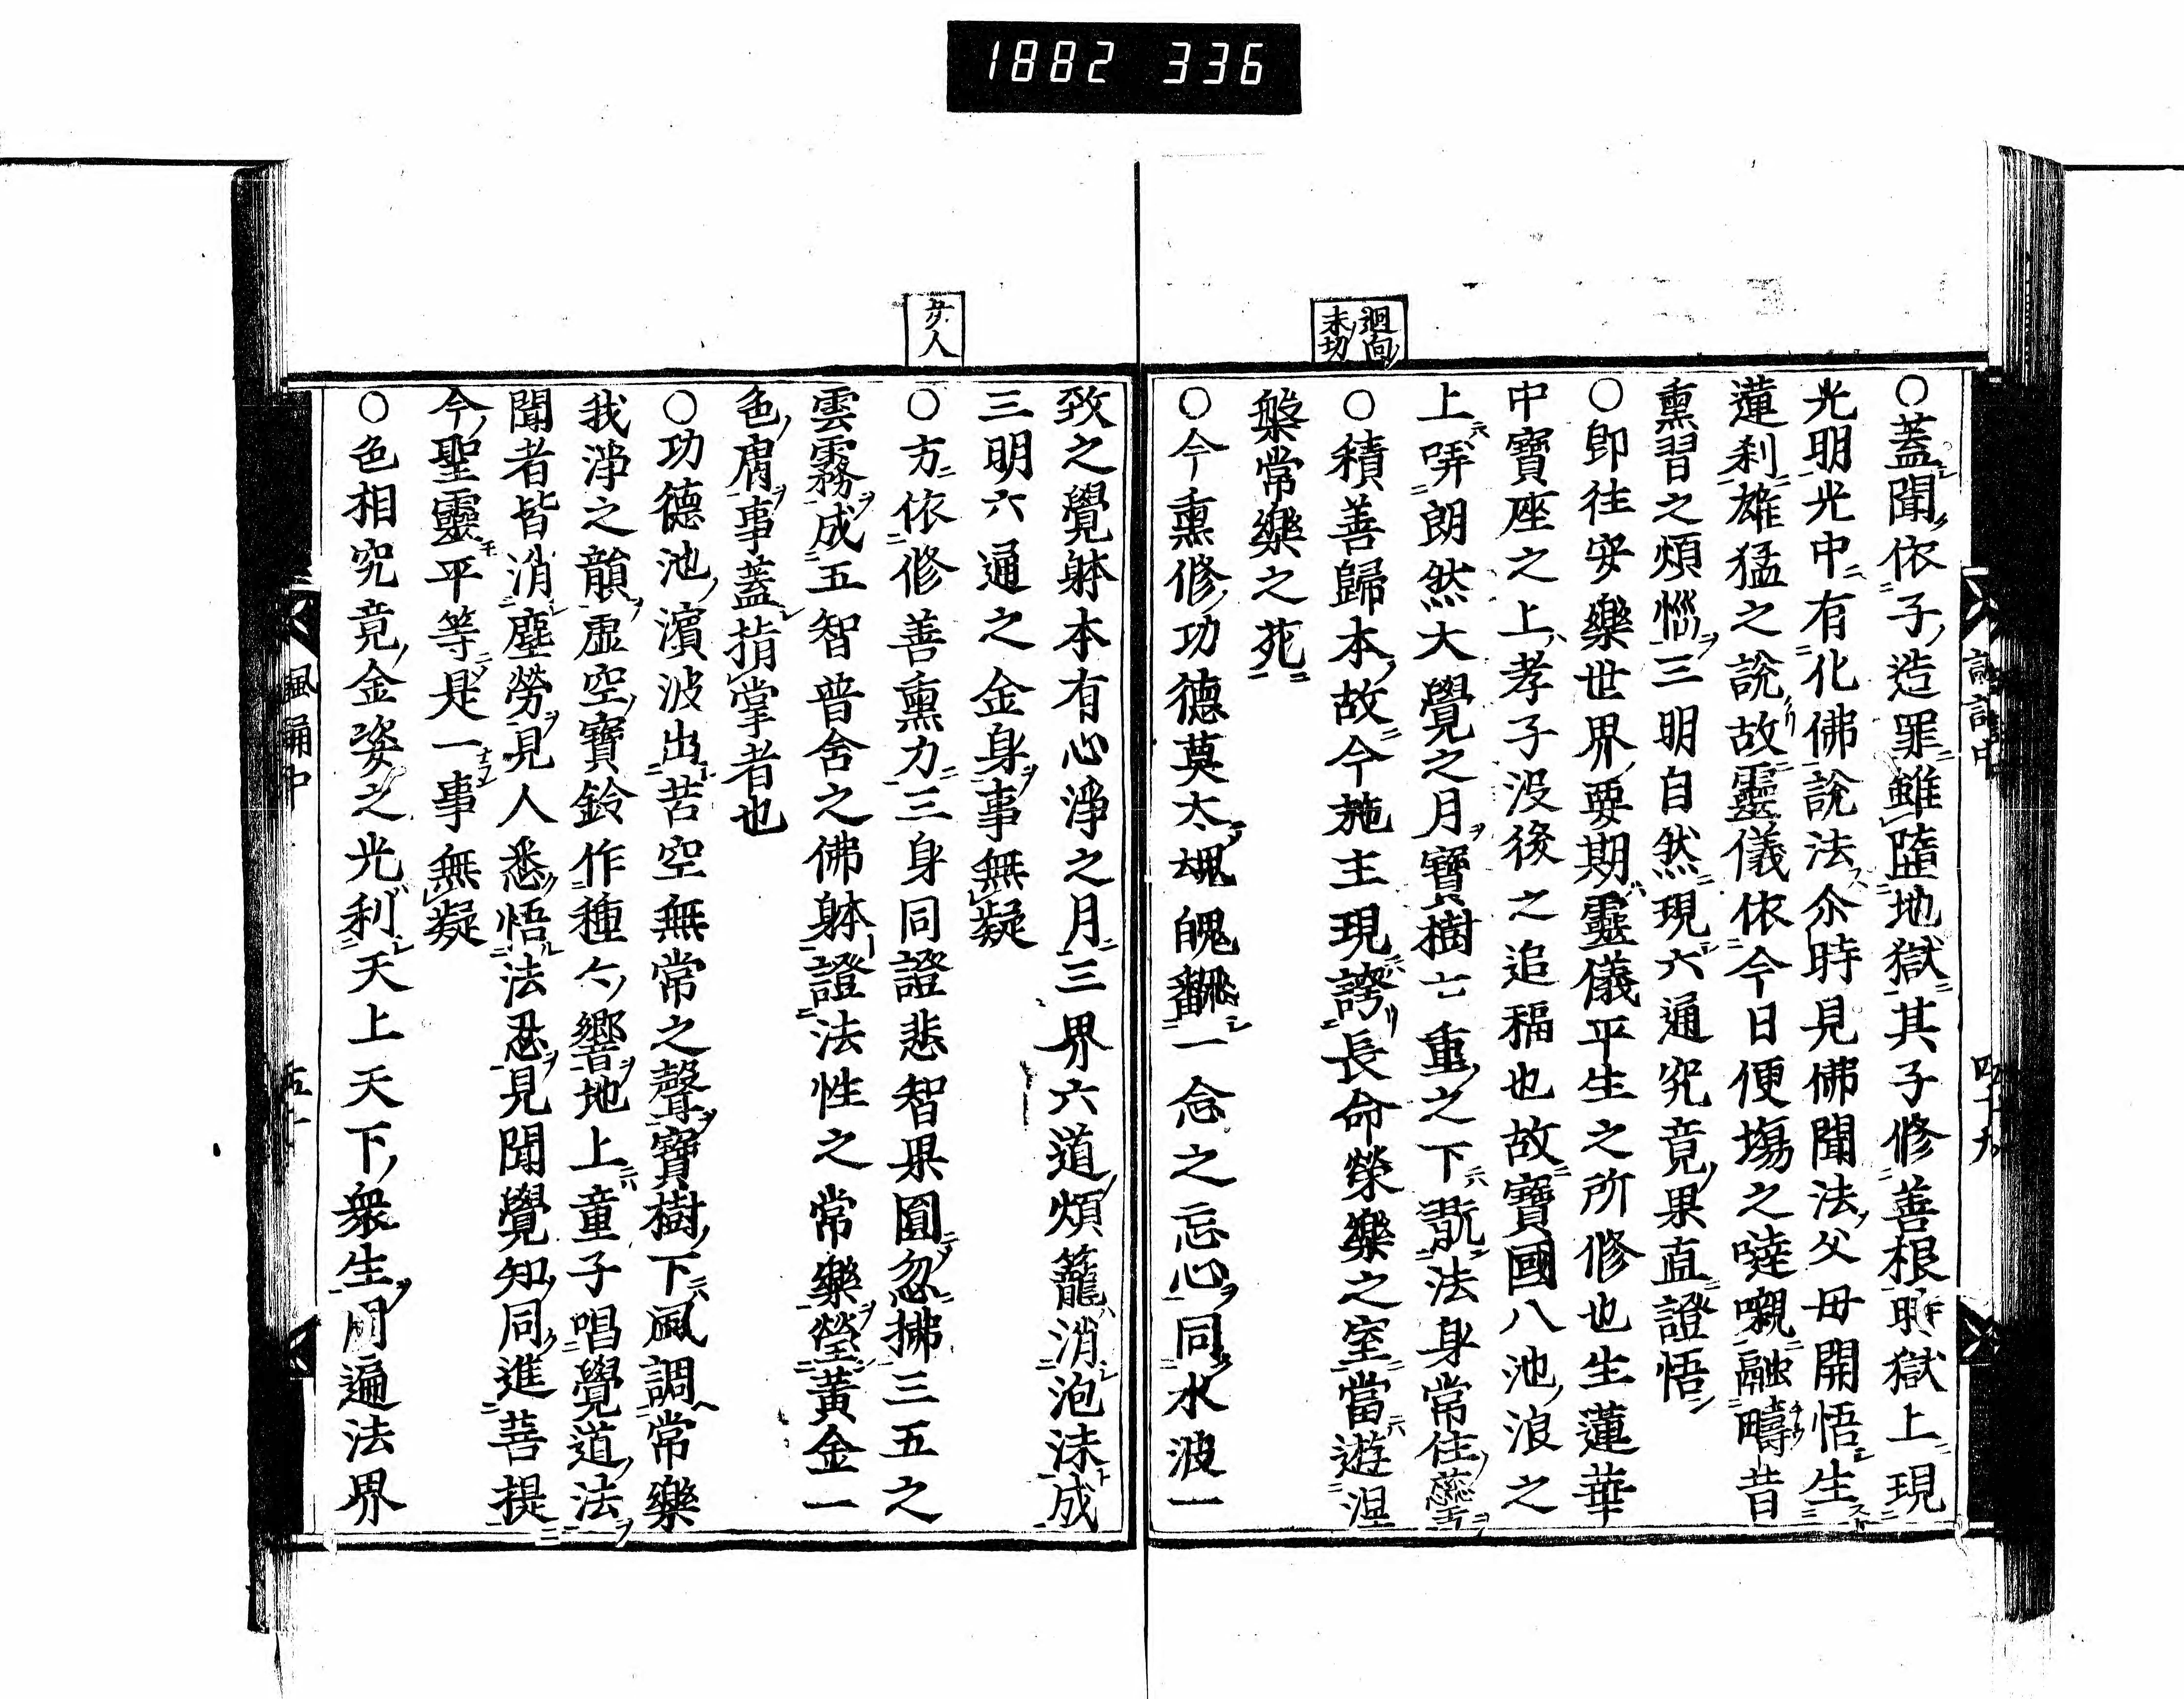 1882 336
迴向
末切
○蓋聞依子造罪雖墮地獄其子修善根時獄上現
光明光中有化佛說法尒時見佛聞法父母開悟生
蓮刹雄猛之說故靈儀依今日便塲之噠嚫融疇昔
熏習之煩惱三明自然現六通究竟果直證悟
○卽往安樂世界要期靈儀平生之所修也生蓮華
中寶座之上孝子没後之追福也故寶國八池浪之
上哢朗然大覺之月寶樹七重之下翫法身常住蘂
○積善歸本故今施主現誇長命榮樂之室當遊涅
槃常樂之苑
○今熏修功德莫太魂魄飜一念之忘心同水波一
女人
致之覺躰本有心淨之月三界六道煩籠消泡沫成
三明六通之金身事無疑
○方依修善熏力三身同證悲智果圓忽拂三五之
雲霧成五智普舍之佛躰證法性之常樂瑩黃金一
色膚事蓋指掌者也
○功德池濱波出苦空無常之聲寶樹下風調常樂
我淨之韻虛空寶鈴作種々響地上童子唱覺道法
聞者皆消塵勞見人悉悟法忍見聞覺知同進菩提
今聖靈平等是一事無疑
○色相究竟金姿之光利天上天下衆生周遍法界
諷誦中
五十
四十九